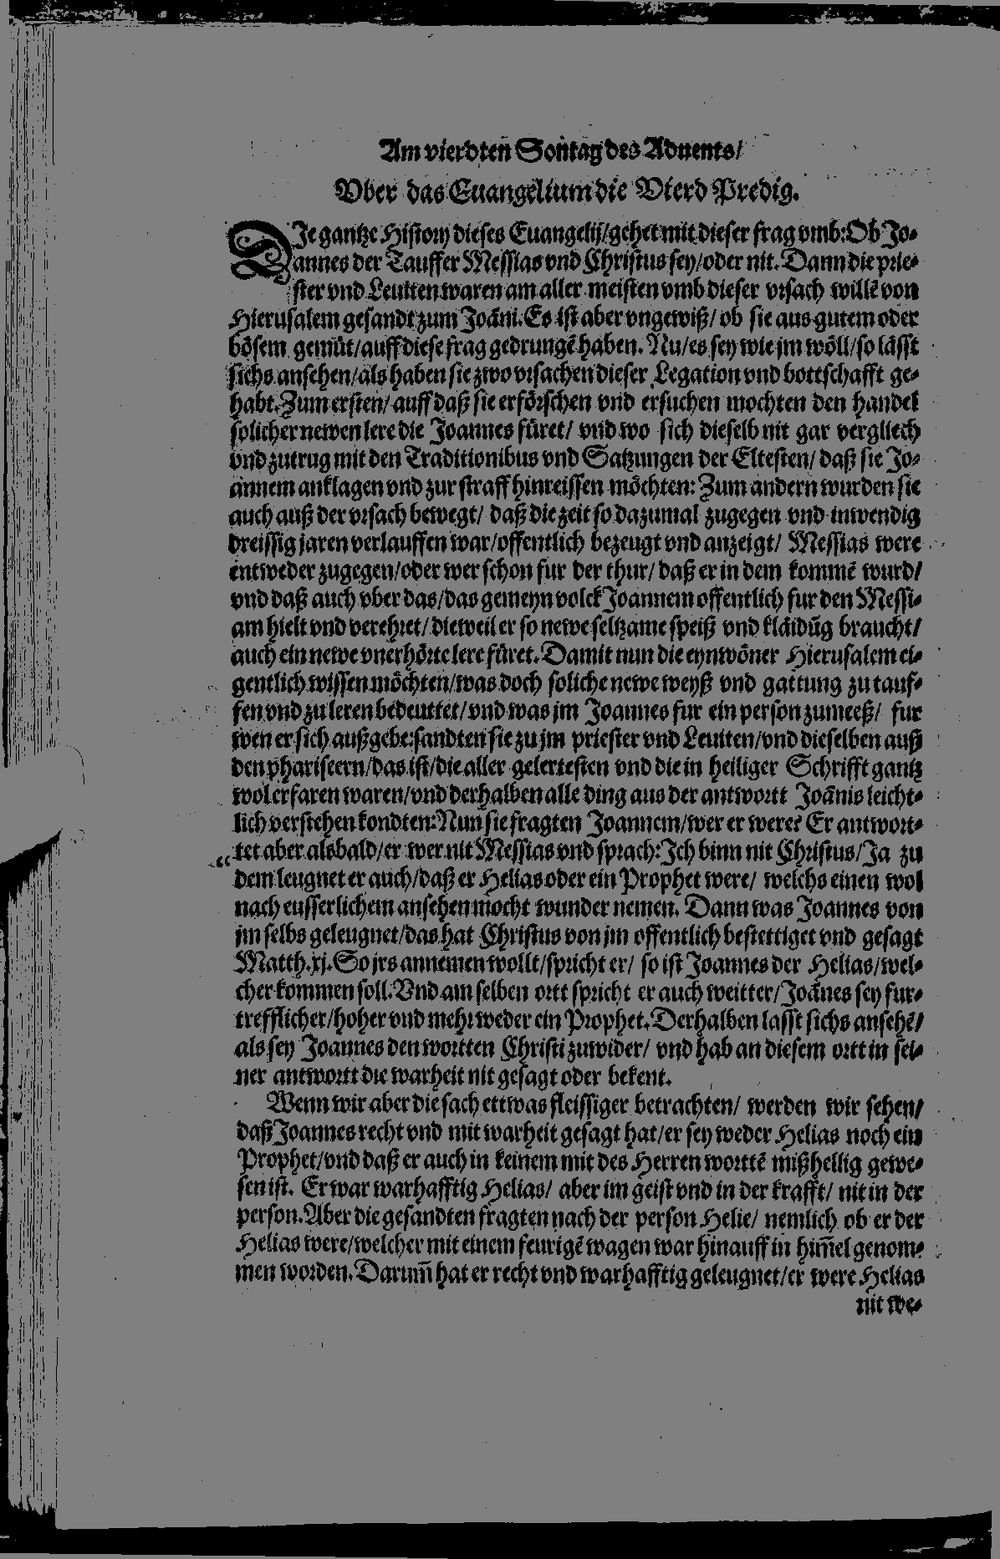 Am vierdten Sontag des Aduents/
Vber das Euangelium die Vierd Predig.
DIe gantze History dieses Euangelij/gehet mit dieser frag vmb: Ob Jo-
annes der Tauffer Messias vnd Christus sey/oder nit. Dann die prie-
ster vnd Leuiten waren am aller meisten vmb dieser vrsach willē von
Hierusalem gesandt zum Joāni. Es ist aber vngewiß/ ob sie aus gutem oder
bösem gemüt/auff diese frag gedrungē haben. Nu/es sey wie jm wöll/so lässt
sichs ansehen/als haben sie zwo vrsachen dieser Legation vnd bottschafft ge-
habt. Zum ersten/auff daß sie erförschen vnd ersuchen mochten den handel
solicher newen lere die Joannes füret/ vnd wo sich dieselb nit gar vergliech
vnd zutrug mit den Traditionibus vnd Satzungen der Eltesten/ daß sie Jo-
annem anklagen vnd zur straff hinreissen möchten: Zum andern wurden sie
auch auß der vrsach bewegt/ daß die zeit so dazumal zugegen vnd inwendig
dreissig jaren verlauffen war/offentlich bezeugt vnd anzeigt/ Messias were
entweder zugegen/oder wer schon fur der thur/ daß er in dem kommē wurd/
vnd daß auch vber das/das gemeyn volck Joannem offentlich fur den Messi-
am hielt vnd verehret/ dieweil er so newe seltzame speiß vnd kläidūg braucht/
auch ein newe vnerhörte lere füret. Damit nun die eynwöner Hierusalem ei-
gentlich wissen möchten/was doch soliche newe weyß vnd gattung zu tauf-
fen vnd zu leren bedeuttet/vnd was jm Joannes fur ein person zumeeß/ fur
wen er sich außgebe: sandten sie zu jm priester vnd Leuiten/vnd dieselben auß
den phariseern/das ist/die aller gelertesten vnd die in heiliger Schrifft gantz
wol erfaren waren/vnd derhalben alle ding aus der antwortt Joānis leicht-
lich verstehen kondten: Nun sie fragten Joannem/wer er were? Er antwort-
tet aber alsbald/er wer nit Messias vnd sprach: Ich binn nit Christus/Ja zu
dem leugnet er auch/daß er Helias oder ein Prophet were/ welchs einen wol
nach eusserlichem ansehen mocht wunder nemen. Dann was Joannes von
jm selbs geleugnet/das hat Christus von jm offentlich bestettiget vnd gesagt
Matth.xj. So jrs annemen wollt/spricht er/ so ist Joannes der Helias/wel-
cher kommen soll. Vnd am selben ortt spricht er auch weitter/Joānes sey fur-
trefflicher/hoher vnd mehr weder ein Prophet. Derhalben lasst sichs ansehē/
als sey Joannes den wortten Christi zuwider/ vnd hab an diesem ortt in sei-
ner antwortt die warheit nit gesagt oder bekent.
Wenn wir aber die sach ettwas fleissiger betrachten/ werden wir sehen/
daß Joannes recht vnd mit warheit gesagt hat/er sey weder Helias noch ein
Prophet/vnd daß er auch in keinem mit des Herren worttē mißhellig gewe-
sen ist. Er war warhafftig Helias/ aber im geist vnd in der krafft/ nit in der
person. Aber die gesandten fragten nach der person Helie/ nemlich ob er der
Helias were/welcher mit einem feurigē wagen war hinauff in him̄el genom-
men worden. Darum̄ hat er recht vnd warhafftig geleugnet/er were Helias
nit we-